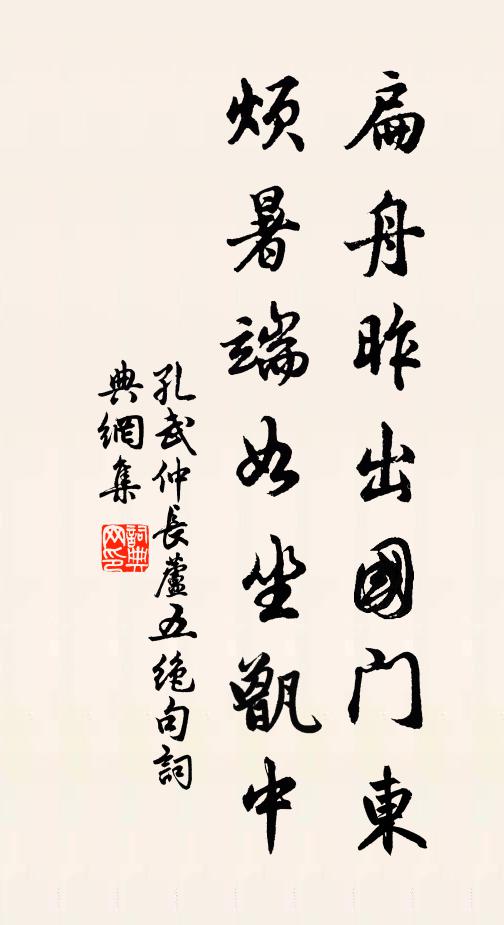 扁舟昨出國門東
煩暑端如坐甑中
孔武仲長蘆五絶句詞
典網集
詞典
网印